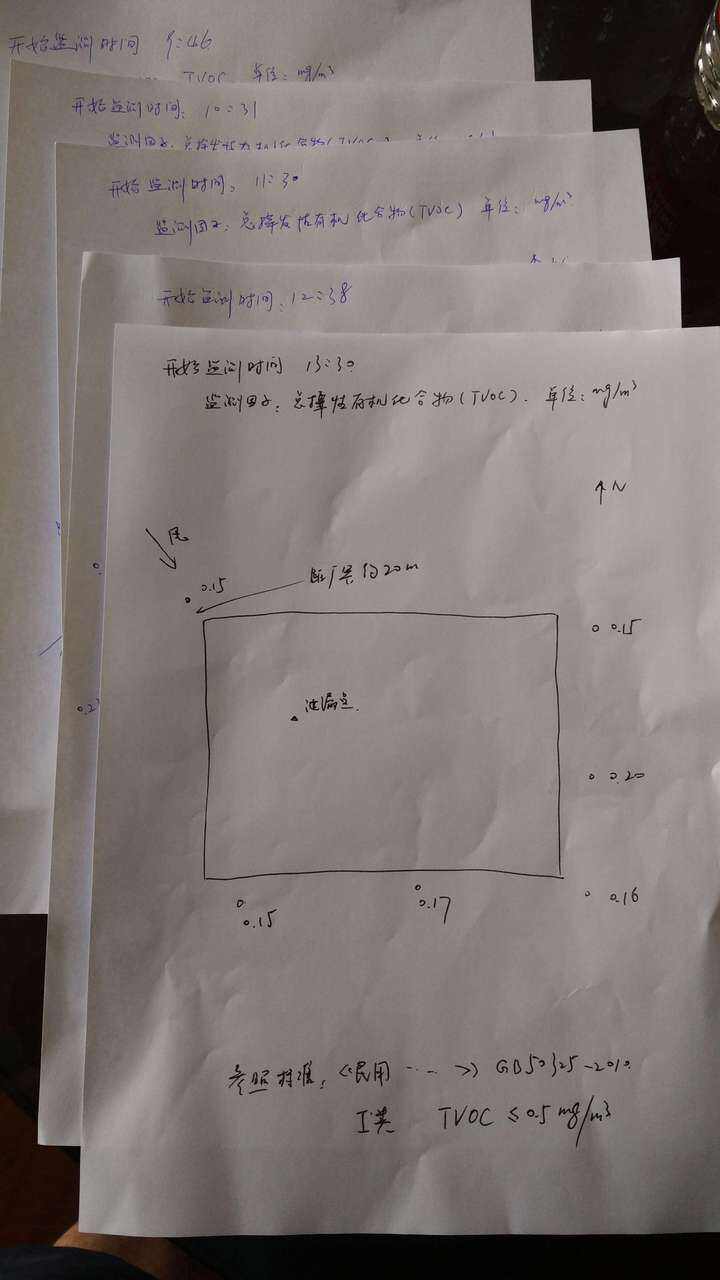 开始监测时间 9:46
TVOC 单位: mg/m³
开始监测时间: 10:31
监测因子: 总挥发性有机化合物(TVOC)
开始监测时间: 11:30
监测因子: 总挥发性有机化合物(TVOC) 单位: mg/m³
开始监测时间: 12:38
开始监测时间 13:30
监测因子: 总挥性有机化合物(TVOC). 单位: mg/m³
↑N
风
0.15
距厂界约20m
0.15
泄漏点.
0.20
0.15
0.17
0.16
参照标准: 《民用 ···· 》 GB50325-2010.
I类 TVOC ≤ 0.5 mg/m³